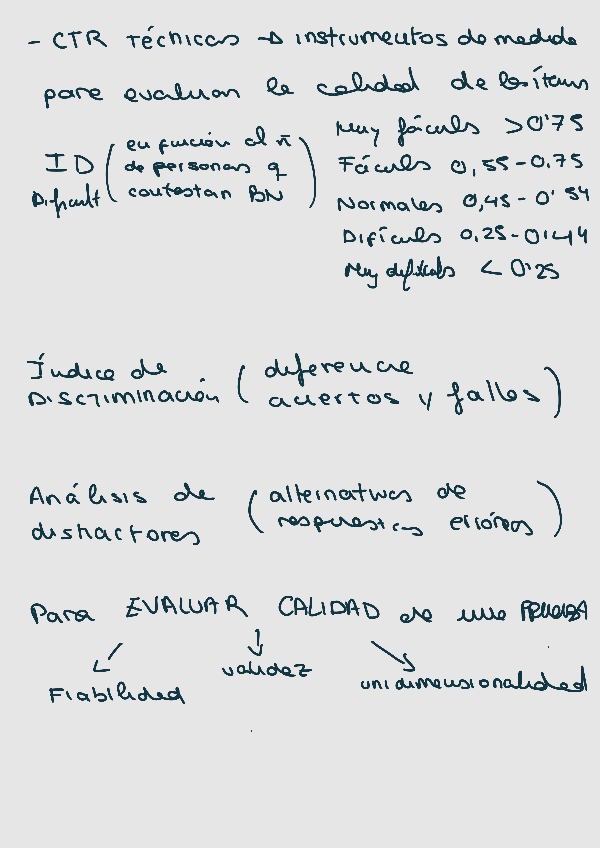 - CTR Técnicas → instrumentos de medida
para evaluar la calidad de los ítems
ID
Dificult
( en función al nº
de personas q
contestan BN )
Muy fáciles > 0'75
Fáciles 0,55-0.75
Normales 0,45-0'54
Difíciles 0.25-0'44
Muy difíciles < 0'25
Índice de
Discriminación
( diferencia
aciertos y fallos )
Análisis de
distractores
( alternativas de
respuestas erróneas )
Para EVALUAR CALIDAD de una PRUEBA
Fiabilidad
validez
unidimensionalidad